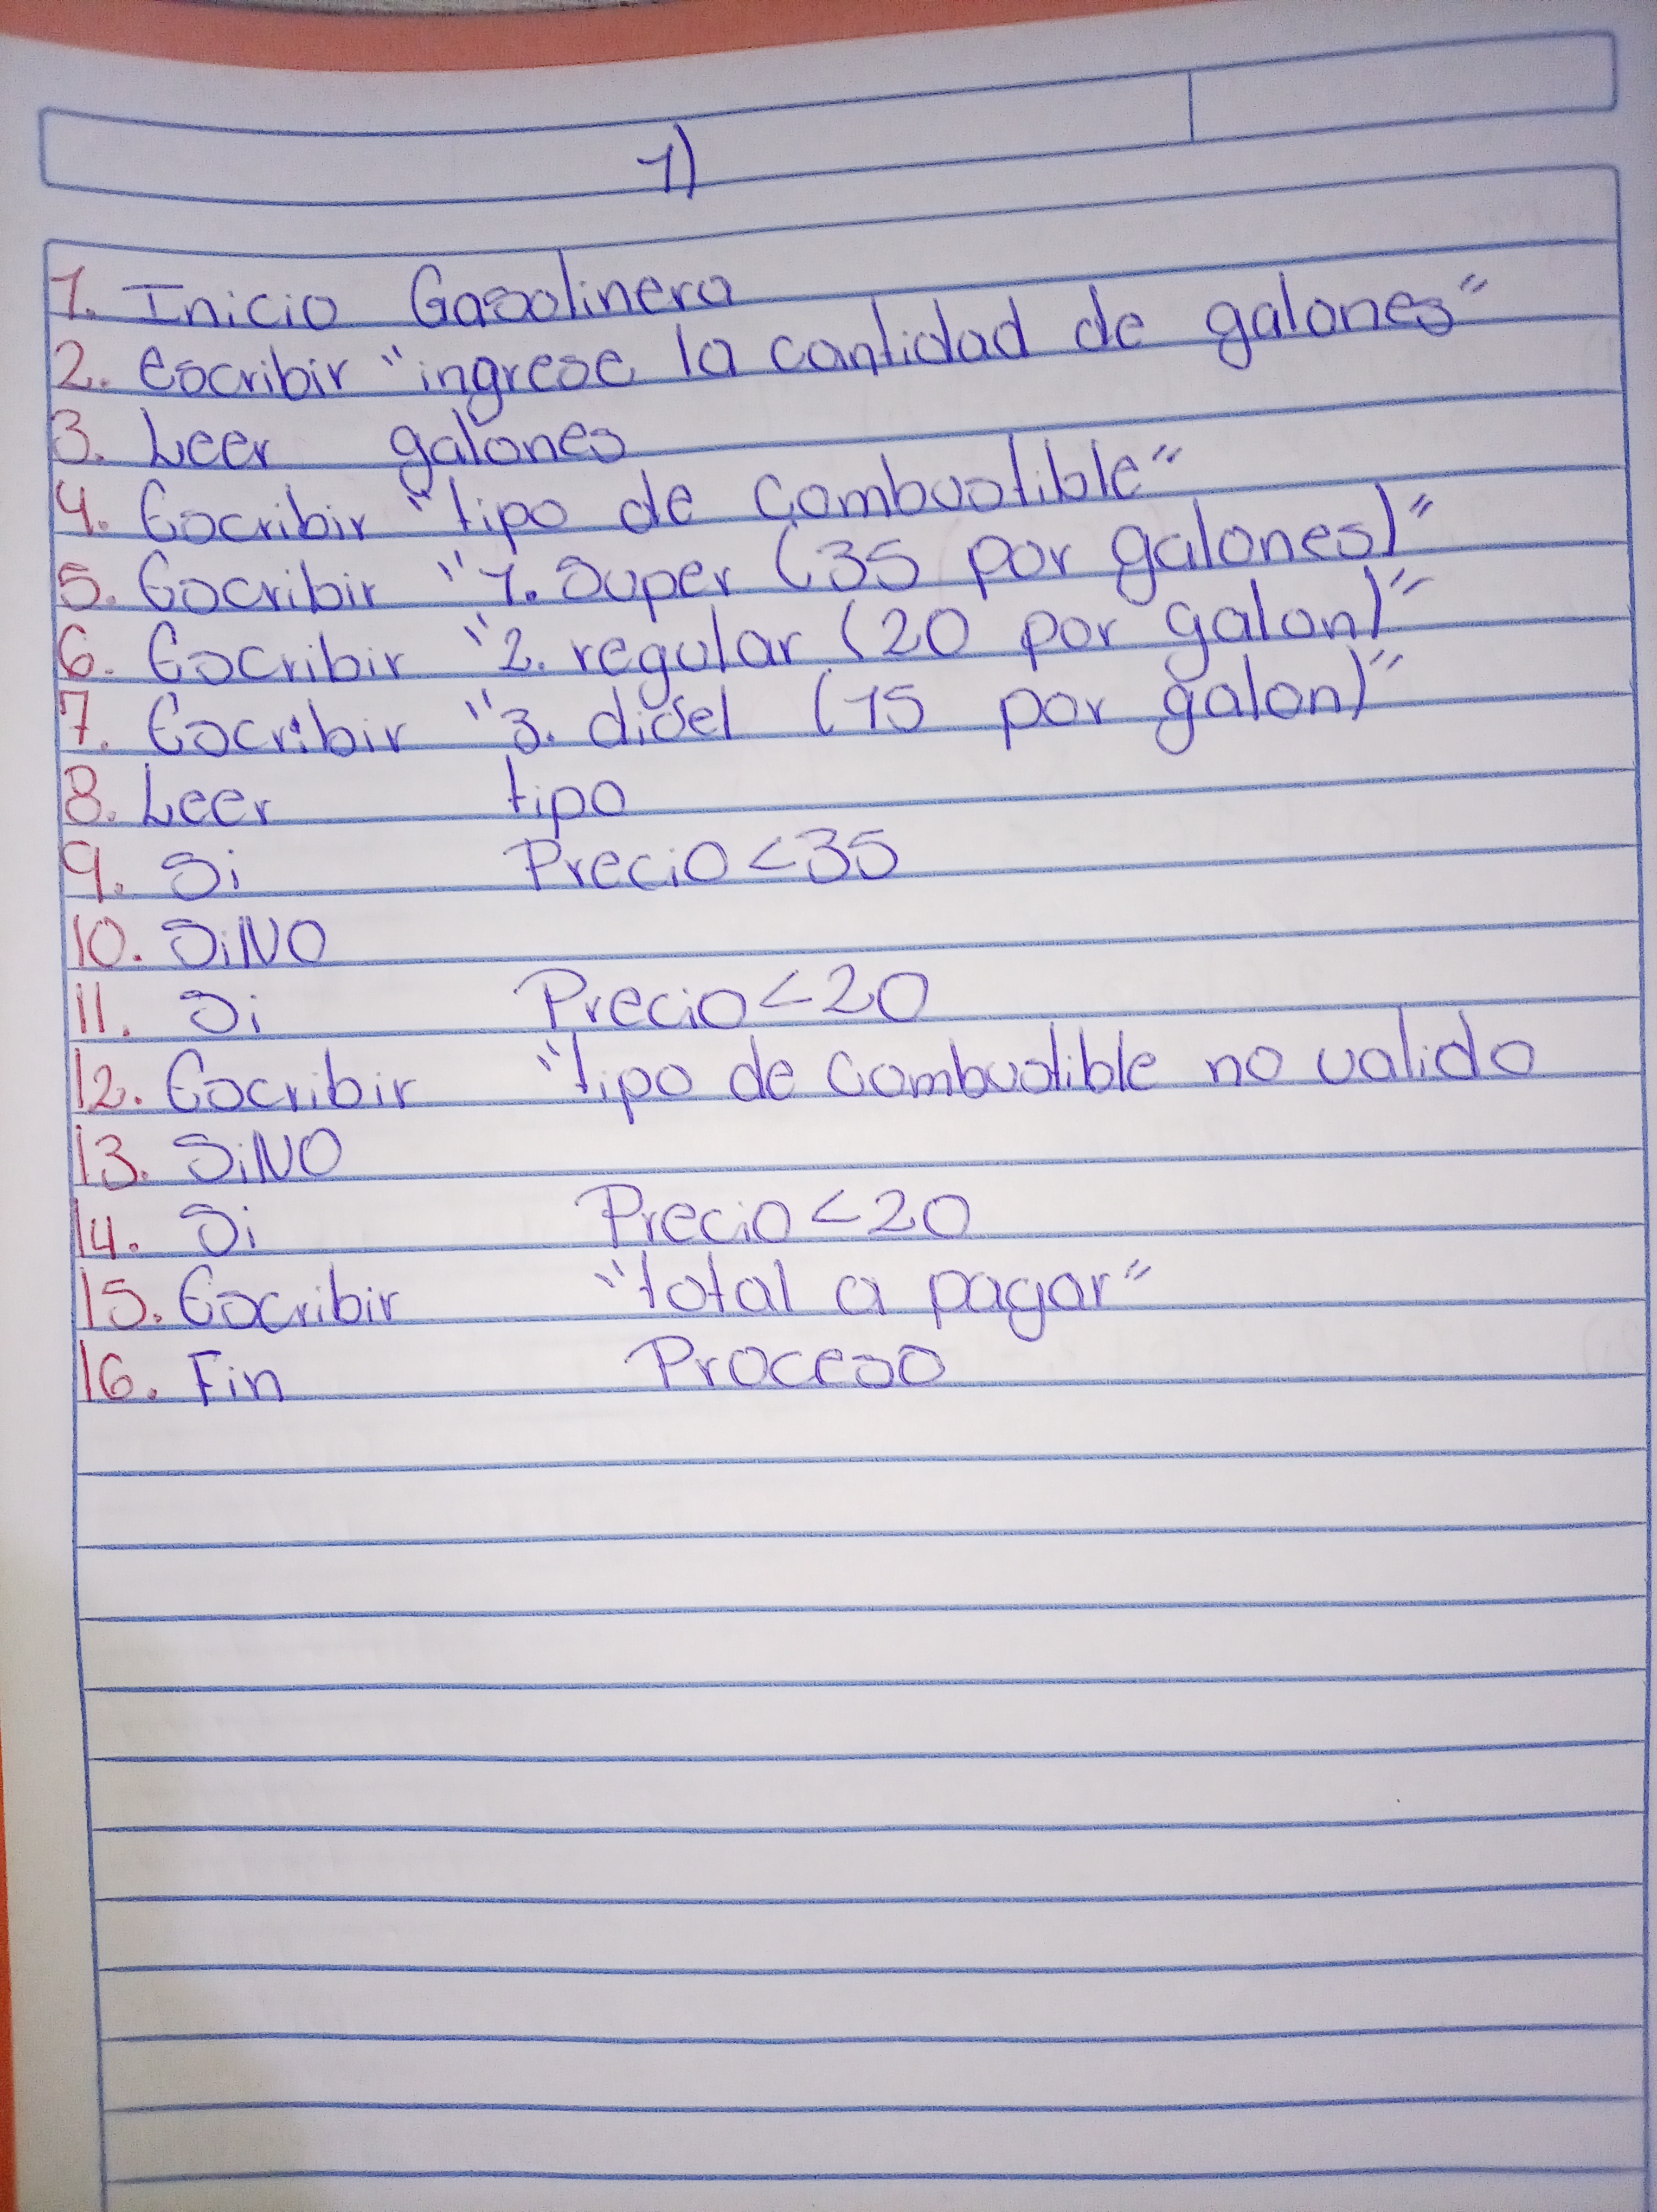 1)
1. Inicio Gasolinera
2. escribir "ingrese la cantidad de galones"
3. Leer galones
4. Escribir "tipo de combustible"
5. Escribir "1. Super (35 por galones)"
6. Escribir "2. regular (20 por galon)"
7. Escribir "3. disel (15 por galon)"
8. Leer tipo
9. Si Precio<35
10. SiNO
11. Si Precio<20
12. Escribir "tipo de combustible no valido
13. SiNO
14. Si Precio<20
15. Escribir "total a pagar"
16. Fin Proceso